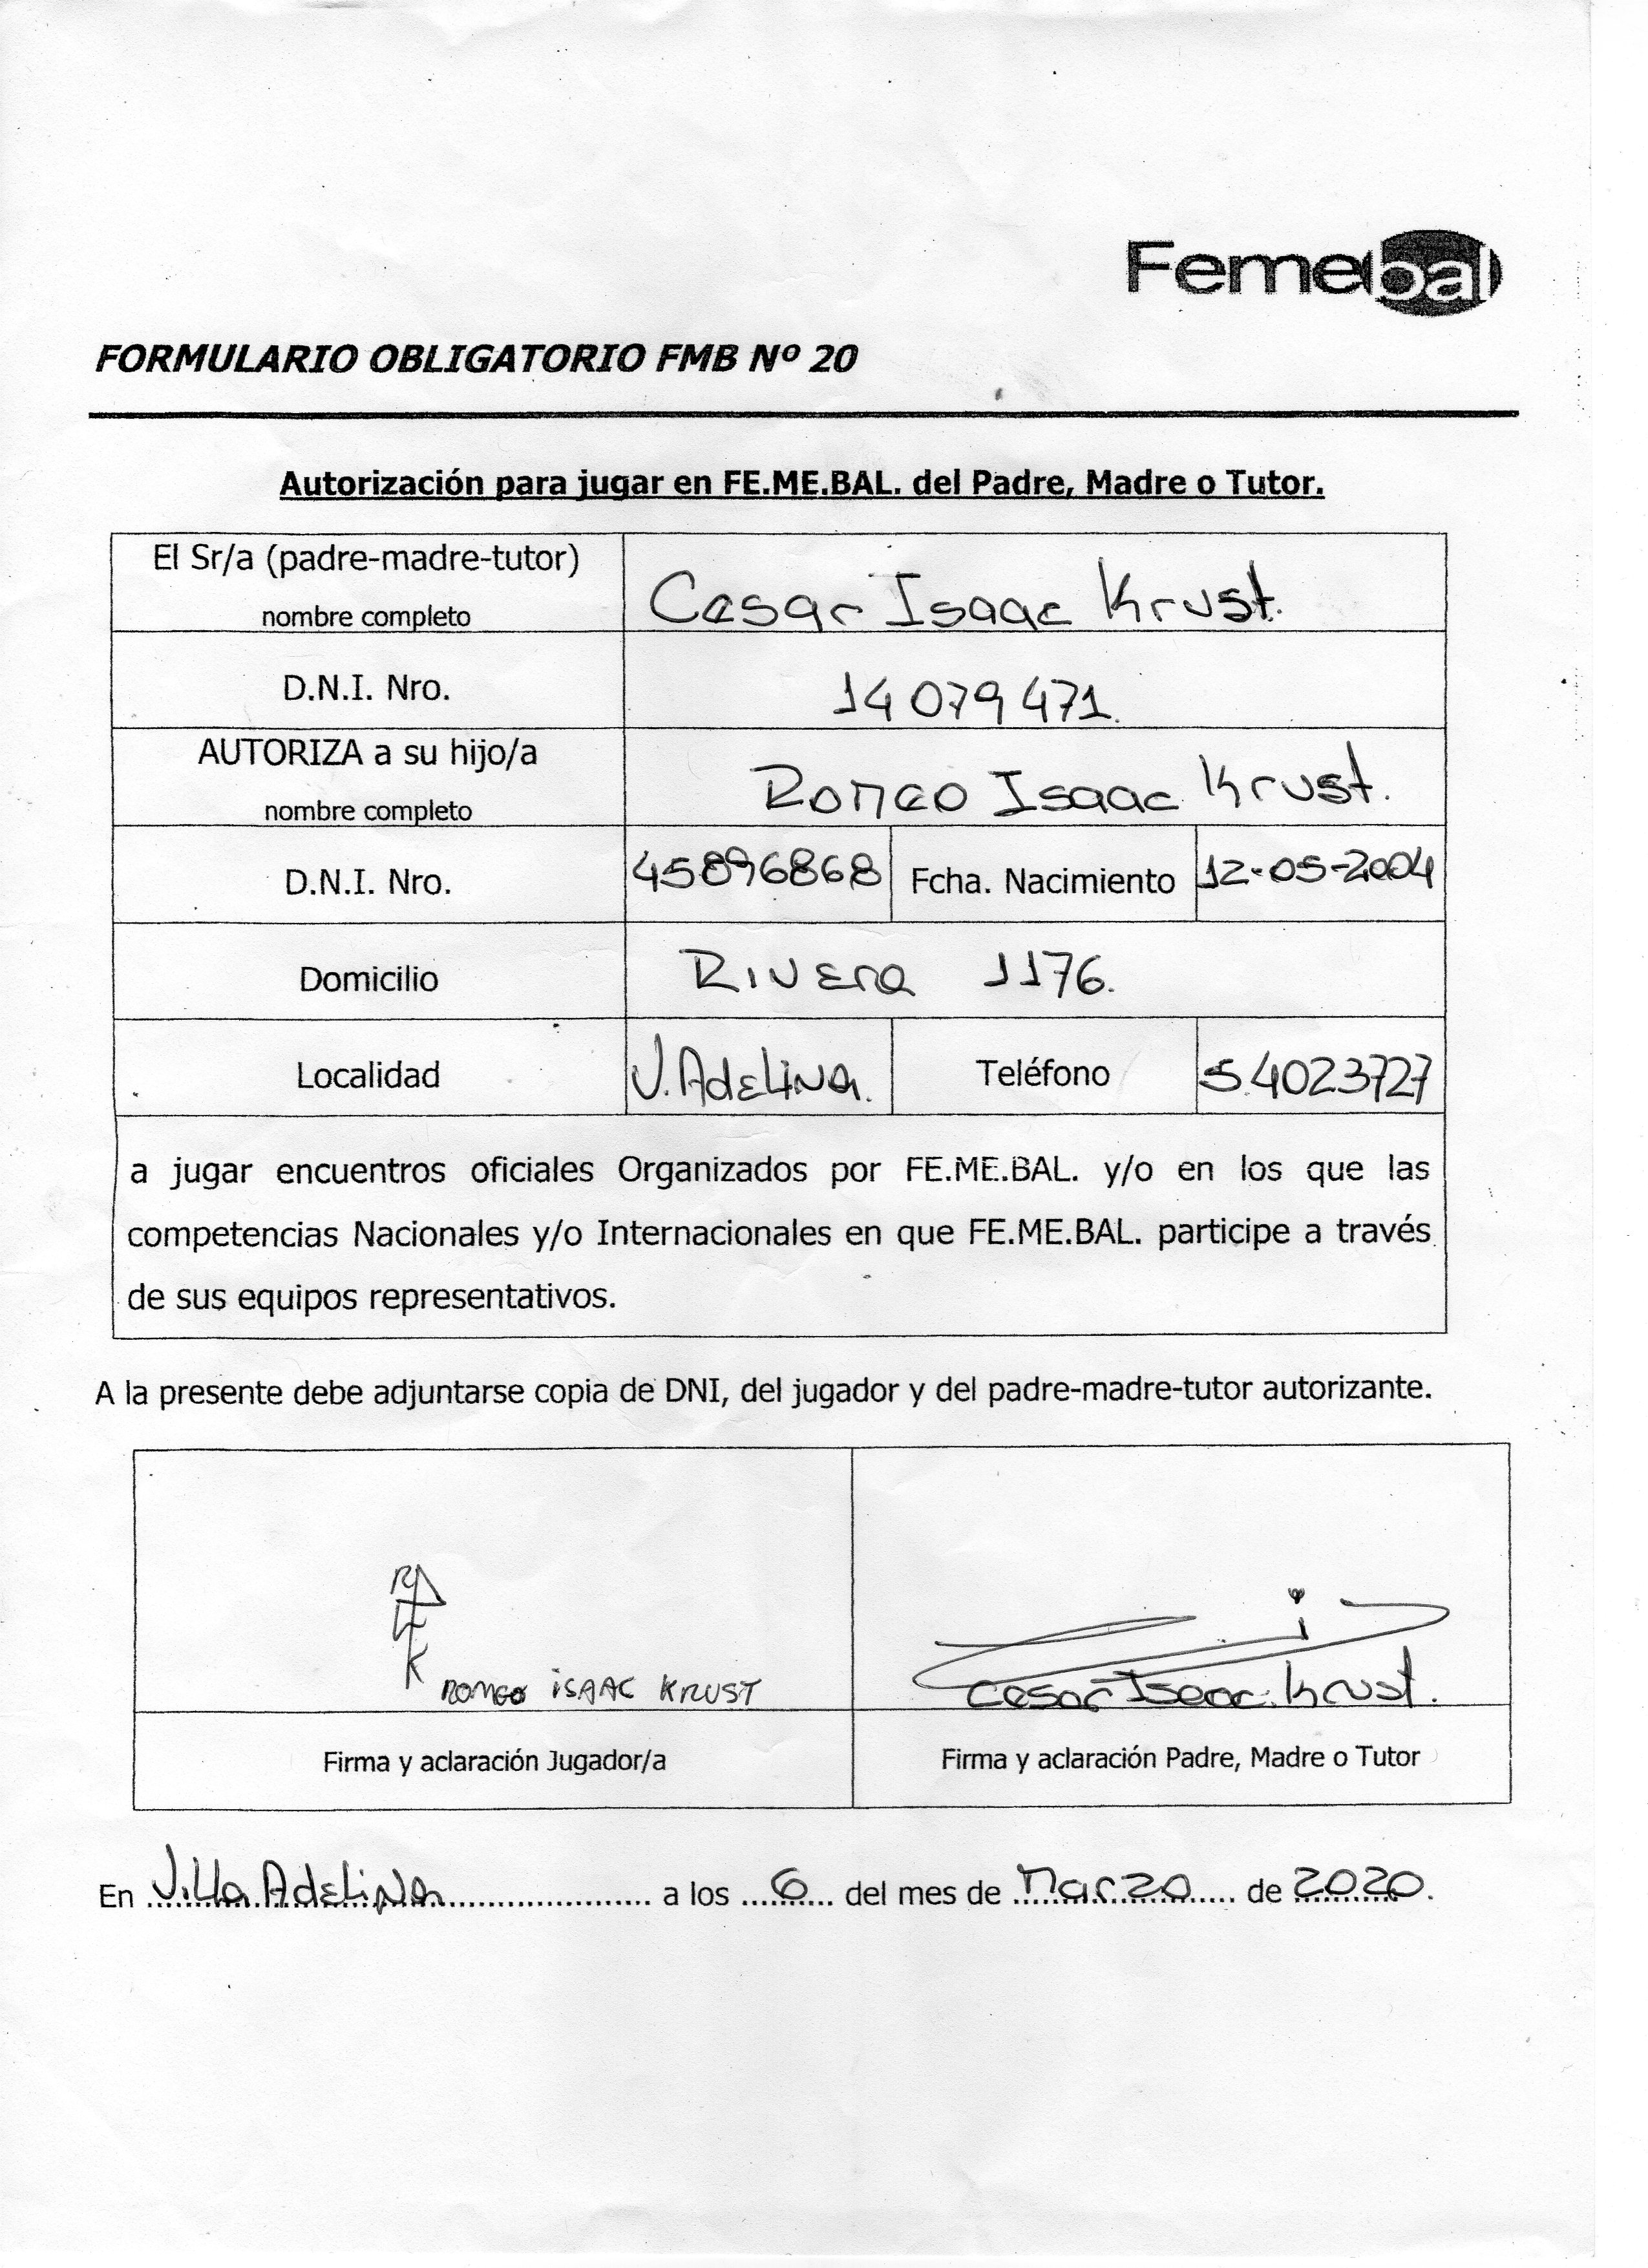 Femebal
FORMULARIO OBLIGATORIO FMB Nº 20
Autorización para jugar en FE.ME.BAL. del Padre, Madre o Tutor.
El Sr/a (padre-madre-tutor)
nombre completo
Cesar Isaac Krust.
D.N.I. Nro.
14079471.
AUTORIZA a su hijo/a
nombre completo
Romeo Isaac Krust.
D.N.I. Nro. 45896868 Fcha. Nacimiento 12-05-2004
Domicilio Rivera 1176.
Localidad V. Adelina. Teléfono 54023727
a jugar encuentros oficiales Organizados por FE.ME.BAL. y/o en los que las
competencias Nacionales y/o Internacionales en que FE.ME.BAL. participe a través
de sus equipos representativos.
A la presente debe adjuntarse copia de DNI, del jugador y del padre-madre-tutor autorizante.
ROMEO ISAAC KRUST
Cesar Isaac Krust.
Firma y aclaración Jugador/a
Firma y aclaración Padre, Madre o Tutor
En Villa Adelina a los 6 del mes de Marzo de 2020.